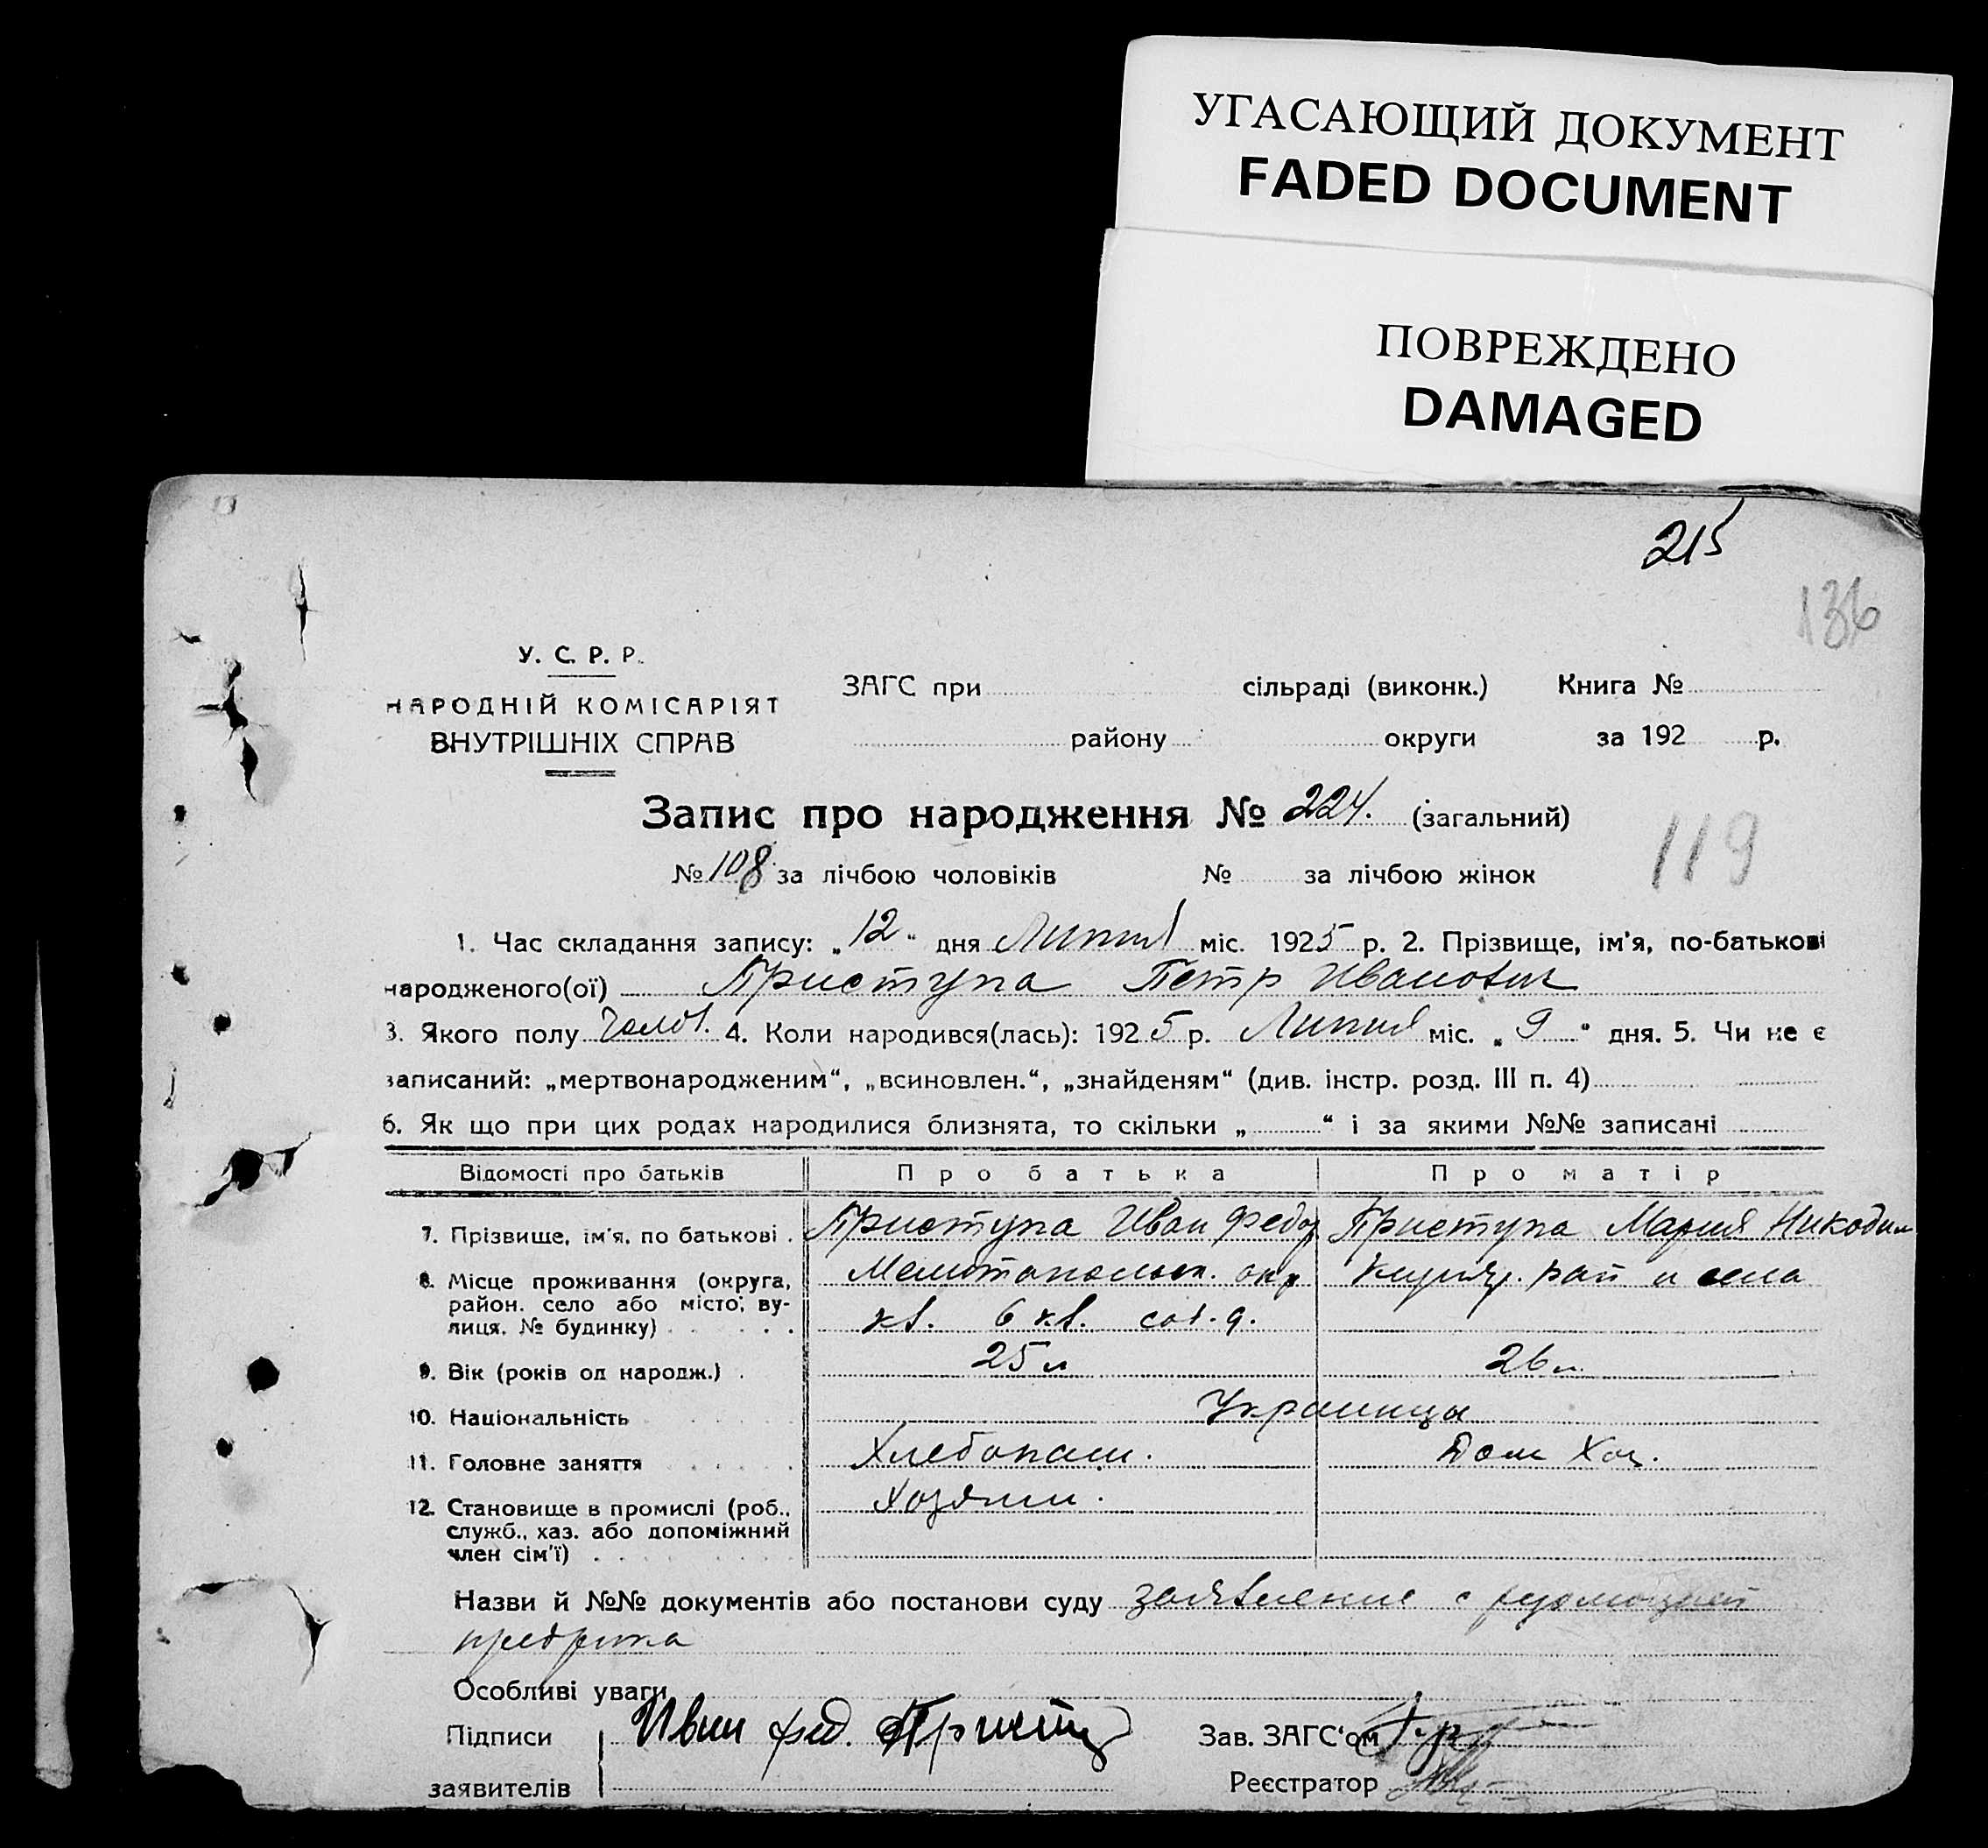 УГАСАЮЩИЙ ДОКУМЕНТ
FADED DOCUMENT
ПОВРЕЖДЕНО
DAMAGED
215
136
У. С. Р. Р.
НАРОДНІЙ КОМІСАРІЯТ
ВНУТРІШНІХ СПРАВ
ЗАГС при сільраді (виконк.) Книга №
району округи за 192 р.
Запис про народження № 224. (загальний)
№ 108 за лічбою чоловіків № за лічбою жінок
119
1. Час складання запису: „12“ дня Липня міс. 1925 р. 2. Прізвище, ім'я, по-батькові
народженого(ої) Приступа Петр Иванович
3. Якого полу Чолов. 4. Коли народився(лась): 1925 р. Липня міс. „9“ дня. 5. Чи не є
записаний: „мертвонародженим“, „всиновлен.“, „знайденям“ (див. інстр. розд. III п. 4)
6. Як що при цих родах народилися близнята, то скільки „ “ і за якими №№ записані
Відомості про батьків Про батька Про матір
7. Прізвище, ім'я, по батькові . Приступа Иван Федор Приступа Мария Никодим
8. Місце проживання (округа, район, село або місто; вулиця, № будинку) Мелитопольск. окр рай и села
кв. 6 кв. соб. д.
9. Вік (років од народж.) . 25 л 26 л.
10. Національність Украинцы
11. Головне заняття Хлебопаш. Дом Хоз.
12. Становище в промислі (роб., Хозяин.
служб., хаз. або допоміжний
член сім'ї)
Назви й №№ документів або постанови суду заявление с
Особливі уваги
Підписи Иван фед. Зав. ЗАГС'ом
заявителів Реєстратор